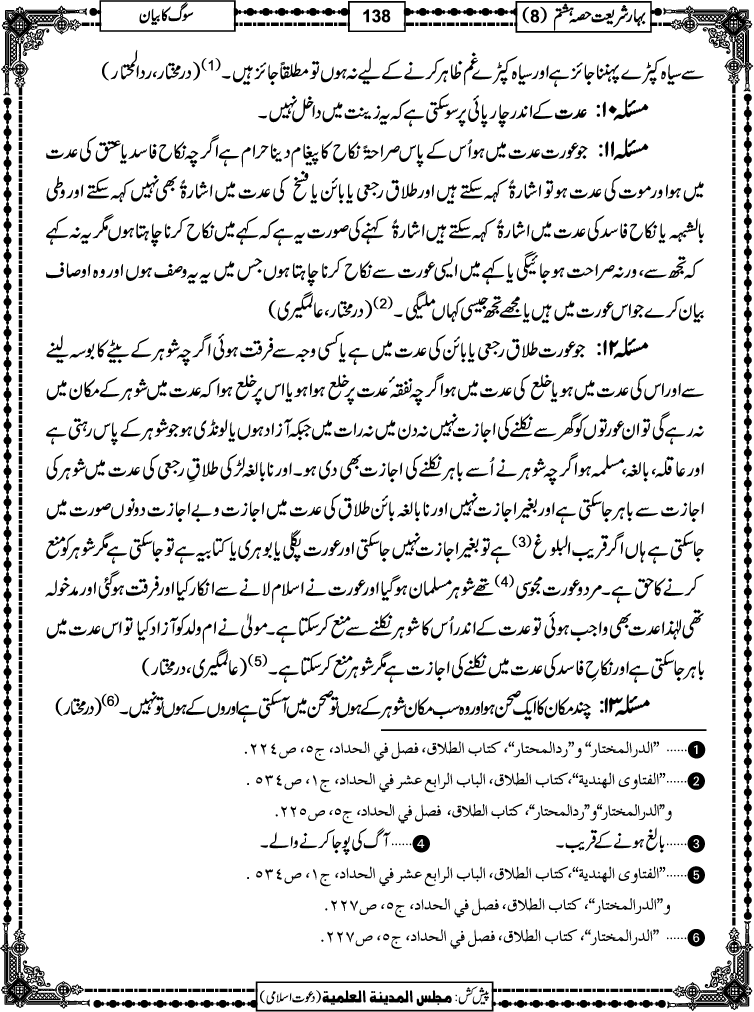 بہار شریعت حصہ ہشتم (8)
138
سوگ کا بیان
سے سیاہ کپڑے پہننا جائز ہے اور سیاہ کپڑے غم ظاہر کرنے کے لیے نہ ہوں تو مطلقاً جائز ہیں۔(1) (درمختار، ردالمحتار)
مسئلہ ۱۰: عدت کے اندر چارپائی پر سوسکتی ہے کہ یہ زینت میں داخل نہیں۔
مسئلہ ۱۱: جو عورت عدت میں ہو اُس کے پاس صراحۃً نکاح کا پیغام دینا حرام ہے اگرچہ نکاح فاسد یا عتق کی عدت
میں ہو اور موت کی عدت ہو تو اشارۃً کہہ سکتے ہیں اور طلاق رجعی یا بائن یا فسخ کی عدت میں اشارۃً بھی نہیں کہہ سکتے اور وطی
بالشبہہ یا نکاح فاسد کی عدت میں اشارۃً کہہ سکتے ہیں اشارۃً کہنے کی صورت یہ ہے کہ کہے میں نکاح کرنا چاہتا ہوں مگر یہ نہ کہے
کہ تجھ سے، ورنہ صراحت ہوجائیگی یا کہے میں ایسی عورت سے نکاح کرنا چاہتا ہوں جس میں یہ یہ وصف ہوں اور وہ اوصاف
بیان کرے جو اس عورت میں ہیں یا مجھے تجھ جیسی کہاں ملیگی۔(2) (درمختار، عالمگیری)
مسئلہ ۱۲: جو عورت طلاق رجعی یا بائن کی عدت میں ہے یا کسی وجہ سے فرقت ہوئی اگرچہ شوہر کے بیٹے کا بوسہ لینے
سے اور اس کی عدت میں ہو یا خلع کی عدت میں ہو اگرچہ نفقۂ عدت پر خلع ہوا ہو یا اس پر خلع ہوا کہ عدت میں شوہر کے مکان میں
نہ رہے گی تو ان عورتوں کو گھر سے نکلنے کی اجازت نہیں نہ دن میں نہ رات میں جبکہ آزاد ہوں یا لونڈی ہو جو شوہر کے پاس رہتی ہے
اور عاقلہ، بالغہ، مسلمہ ہو اگرچہ شوہر نے اُسے باہر نکلنے کی اجازت بھی دی ہو۔ اور نابالغہ لڑکی طلاقِ رجعی کی عدت میں شوہر کی
اجازت سے باہر جاسکتی ہے اور بغیر اجازت نہیں اور نابالغہ بائن طلاق کی عدت میں اجازت و بے اجازت دونوں صورت میں
جاسکتی ہے ہاں اگر قریب البلوغ(3) ہے تو بغیر اجازت نہیں جاسکتی اور عورت پگلی یا بوہری یا کتابیہ ہے تو جاسکتی ہے مگر شوہر کو منع
کرنے کا حق ہے۔ مرد و عورت مجوسی(4) تھے شوہر مسلمان ہوگیا اور عورت نے اسلام لانے سے انکار کیا اور فرقت ہوگئی اور مدخولہ
تھی لہٰذا عدت بھی واجب ہوئی تو عدت کے اندر اُس کا شوہر نکلنے سے منع کرسکتا ہے۔ مولیٰ نے ام ولد کو آزاد کیا تو اس عدت میں
باہر جاسکتی ہے اور نکاحِ فاسد کی عدت میں نکلنے کی اجازت ہے مگر شوہر منع کرسکتا ہے۔(5) (عالمگیری، درمختار)
مسئلہ ۱۳: چند مکان کا ایک صحن ہو اور وہ سب مکان شوہر کے ہوں تو صحن میں آسکتی ہے اوروں کے ہوں تو نہیں۔(6) (درمختار)
1 ...... ”الدرالمختار“ و ”ردالمحتار“، کتاب الطلاق، فصل في الحداد، ج٥، ص٢٢٤.
2 ......”الفتاوی الهندیة“، کتاب الطلاق، الباب الرابع عشر في الحداد، ج١، ص٥٣٤ .
و”الدرالمختار“و”ردالمحتار“، کتاب الطلاق، فصل في الحداد، ج٥، ص٢٢٥.
3 ...... بالغ ہونے کے قریب۔ 4 ...... آگ کی پوجا کرنے والے۔
5 ......”الفتاوی الهندیة“، کتاب الطلاق، الباب الرابع عشر في الحداد، ج١، ص٥٣٤ .
و”الدرالمختار“، کتاب الطلاق، فصل في الحداد، ج٥، ص٢٢٧.
6 ...... ”الدرالمختار“، کتاب الطلاق، فصل في الحداد، ج٥، ص٢٢٧.
پیش کش: مجلس المدینة العلمیة (دعوتِ اسلامی)